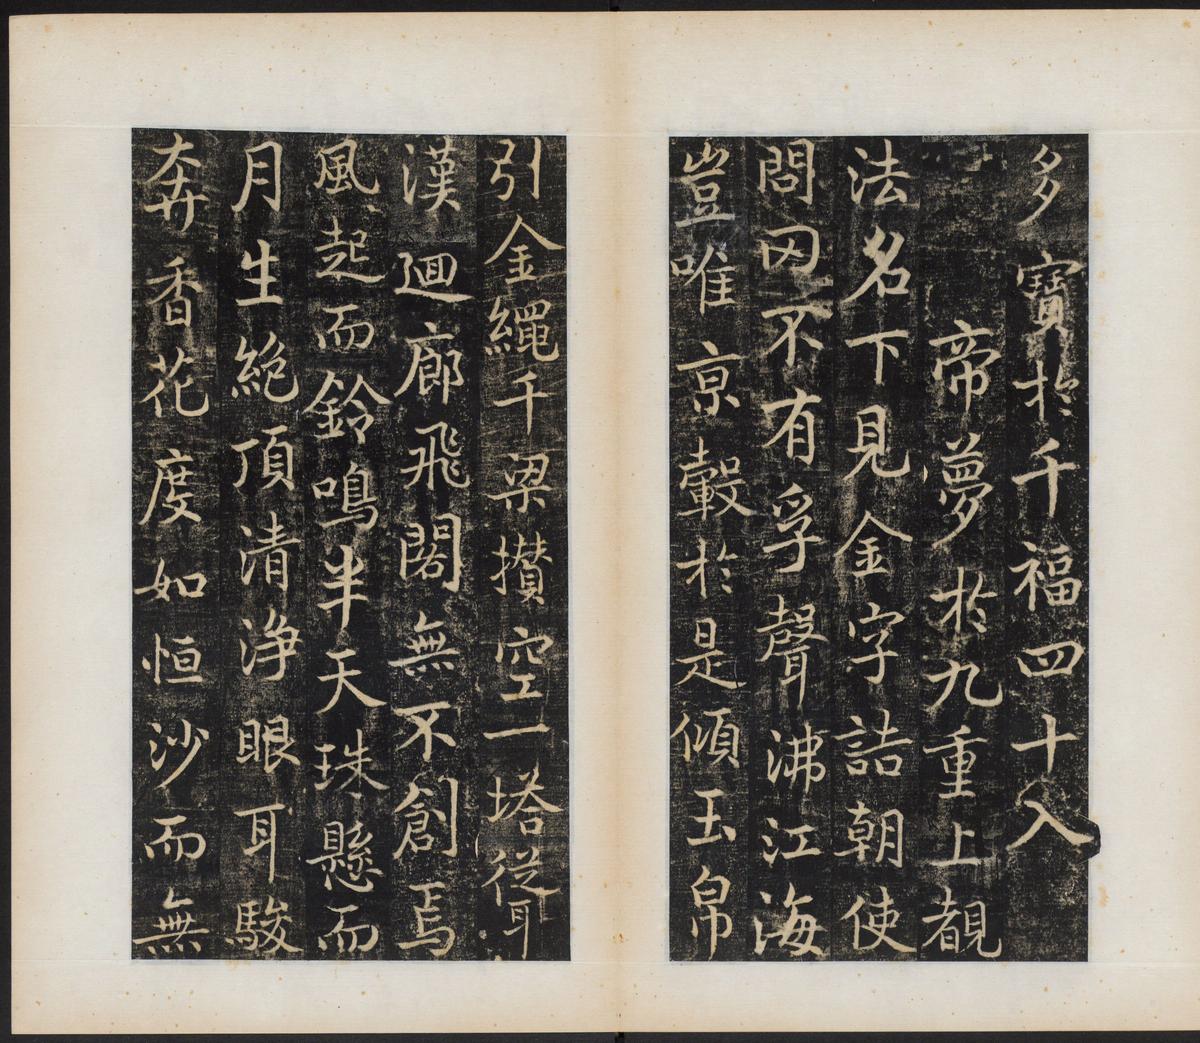 多寶於千福四十入
帝夢於九重上覩
法名下見金字詰朝使
問罔不有孚聲沸江海
豈唯京轂於是傾玉帛
引金繩千梁攢空一塔聳
漢迴廊飛閣無不創焉
風起而鈴鳴半天珠懸而
月生絶頂清淨眼耳駿
奔香花度如恒沙而無